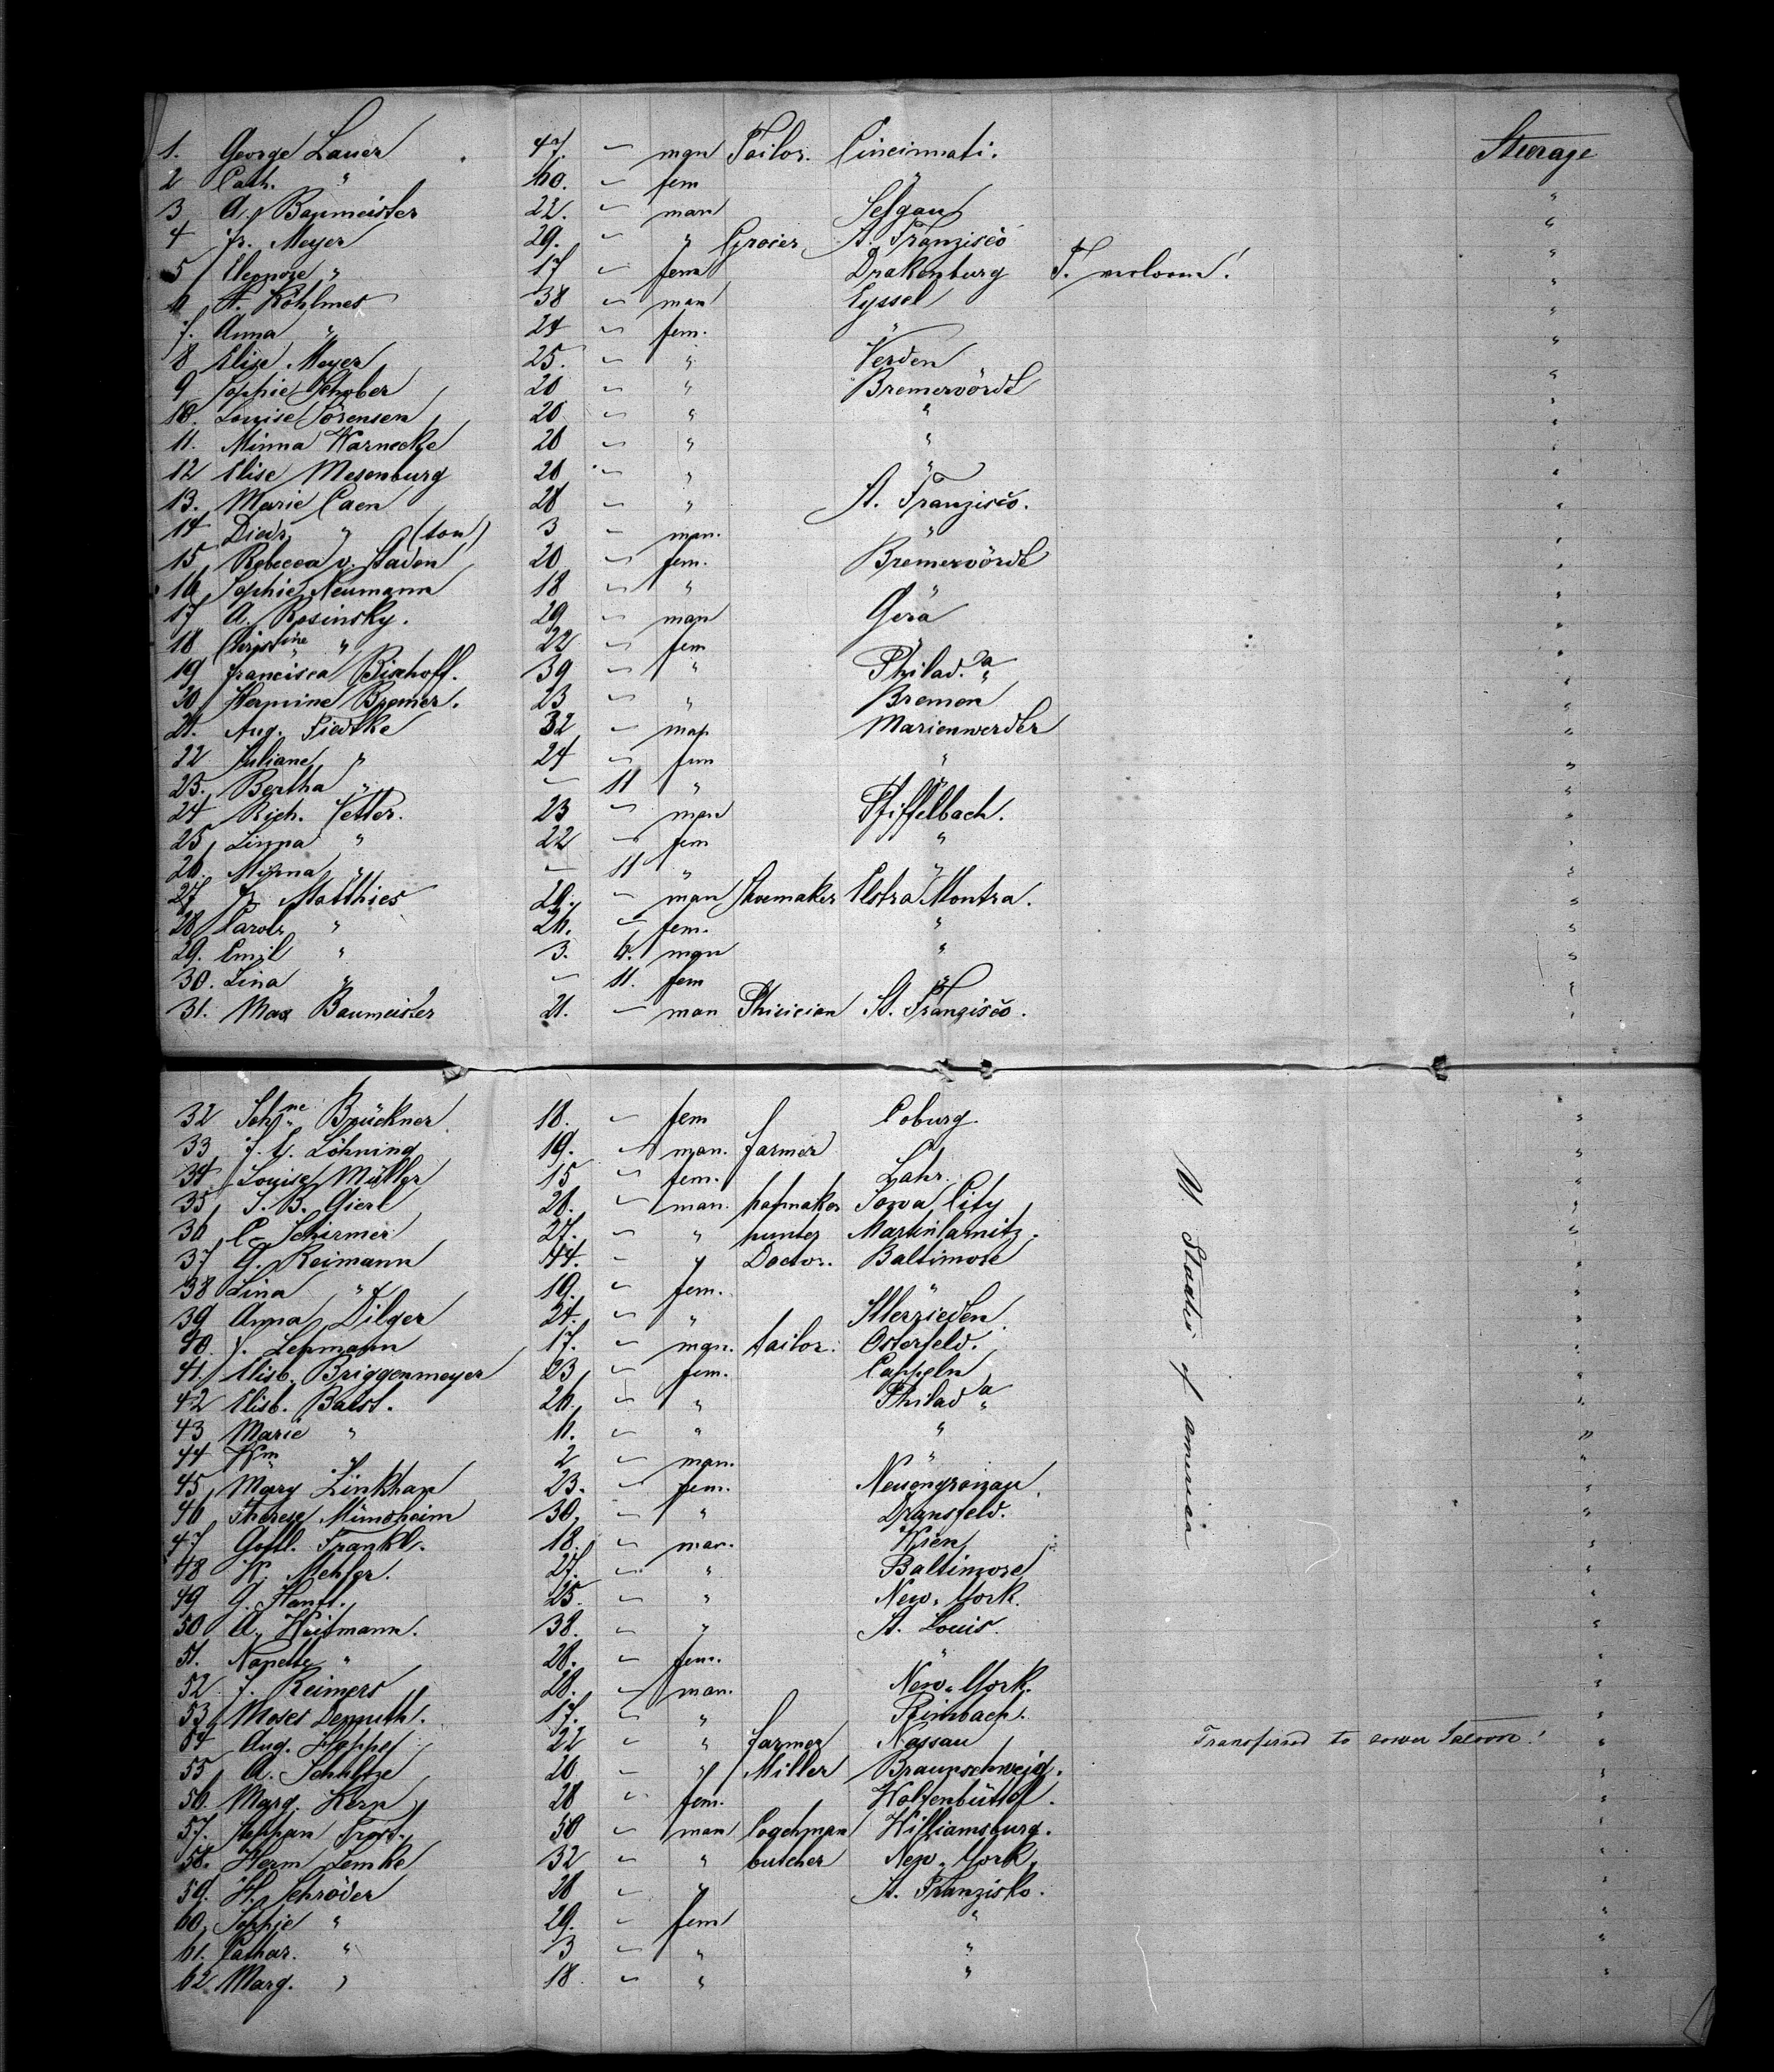 1. George Lauer 47. – man Tailor. Cincinnati. Steerage
2 Cath. " 40. – fem " "
3 A. Baumeister 22. – man Selgau "
4 Fr. Meyer 29. – " Grocer St. Franzisco "
5 Eleonore " 17 – fem Drakenburg "
6 A. Köhlmes 38 – man Eyssel "
7. Anna " 24 – fem. " "
8 Elise Meyer 25. – " Verden "
9 Sophie Schober 20 – " Bremervörde "
10. Louise Sörensen 20 – " " "
11. Minna Warnecke 20 – " " "
12 Elise Mesenburg 20 – " " "
13. Marie Caen 28 – " St. Franzisco. "
14 Diedr. " (son) 3 – man. " "
15 Rebecca v. Staden 20 – fem. Bremervörde "
16 Sophie Neumann 18 – " " "
17 A. Rosinsky. 29 – man Gera "
18 Christine " 22 – fem " "
19 Francisca Bischoff. 39 – " Philad.a "
20 Hermine Bremer. 23 – " Bremen "
21. Aug. Tiedtke 32 – man Marienwerder "
22 Juliane " 24 – fem " "
23. Bertha " – 11 " " "
24 Rich. Vetter. 23 – man Pfiffelbach. "
25 Linna " 22 – fem " "
26. Minna " – 11 " " "
27 Matthies – man Shoemaker Elstra Montra. "
28 Carol. " 26. – fem. " "
29. Emil " 3. 6. man " "
30. Lina " – 11. fem " "
31. Max Baumeister 21. – man Phisician St. Franzisco. "
32 Joh.ne Brückner 18. – fem Coburg. "
33 Löhning 19. – man. farmer "
34 Louise Müller 15 – fem. Lahr. "
35 J. B. Gierl 28. – man. hatmaker Iowa City "
36 C. Schirmer 27. – " hunter Martinlamitz. "
37 G. Reimann 44. – " Doctor. Baltimore "
38 Lina " 19. – fem. " "
39 Anna Dilger 24. – " Illerrieden "
40. J. Lehmann 17. – man. tailor. Osterfeld. "
41. Elisb. Briggenmeyer 23 – fem. Cappeln "
42 Elisb. Balst. 26. – " Philad.a "
43 Marie " 11. – " " "
44 Wm " 2 – man. " "
45 Mary Linkhan 23. – fem. Neuengronau "
46 Therese Mümsheim 30. – " Dransfeld. "
47 Gottl. Frankl. 18. – man. Wien "
48 Mehler. 27. – " Baltimore "
49 G. Hanft. 25. – " New-York. "
50 A. Heitmann. 38. – " St. Louis. "
51. Nanette " 28. – fem. " "
52 J. Reimers 28. – man. New-York. "
53 Moses Demuth. 17. – " Rimbach. "
54 Aug. Hoppe 22 – " farmer Nassau Transferred to lower Saloon! "
55 A. Schultze 20 – " Miller Braunschweig. "
56. Marg. Kern 28 – fem. Wolfenbüttel. "
57. Trost. 50 – man coachman Williamsburg. "
58. Herm Lemke 32 – " butcher New-York. "
59. H. Schröder 28 – " St. Franzisko. "
60. Sophie " 29. – fem " "
61. Cathar. " 3 – " "
62 Marg. " 18 – " " "
U States of america